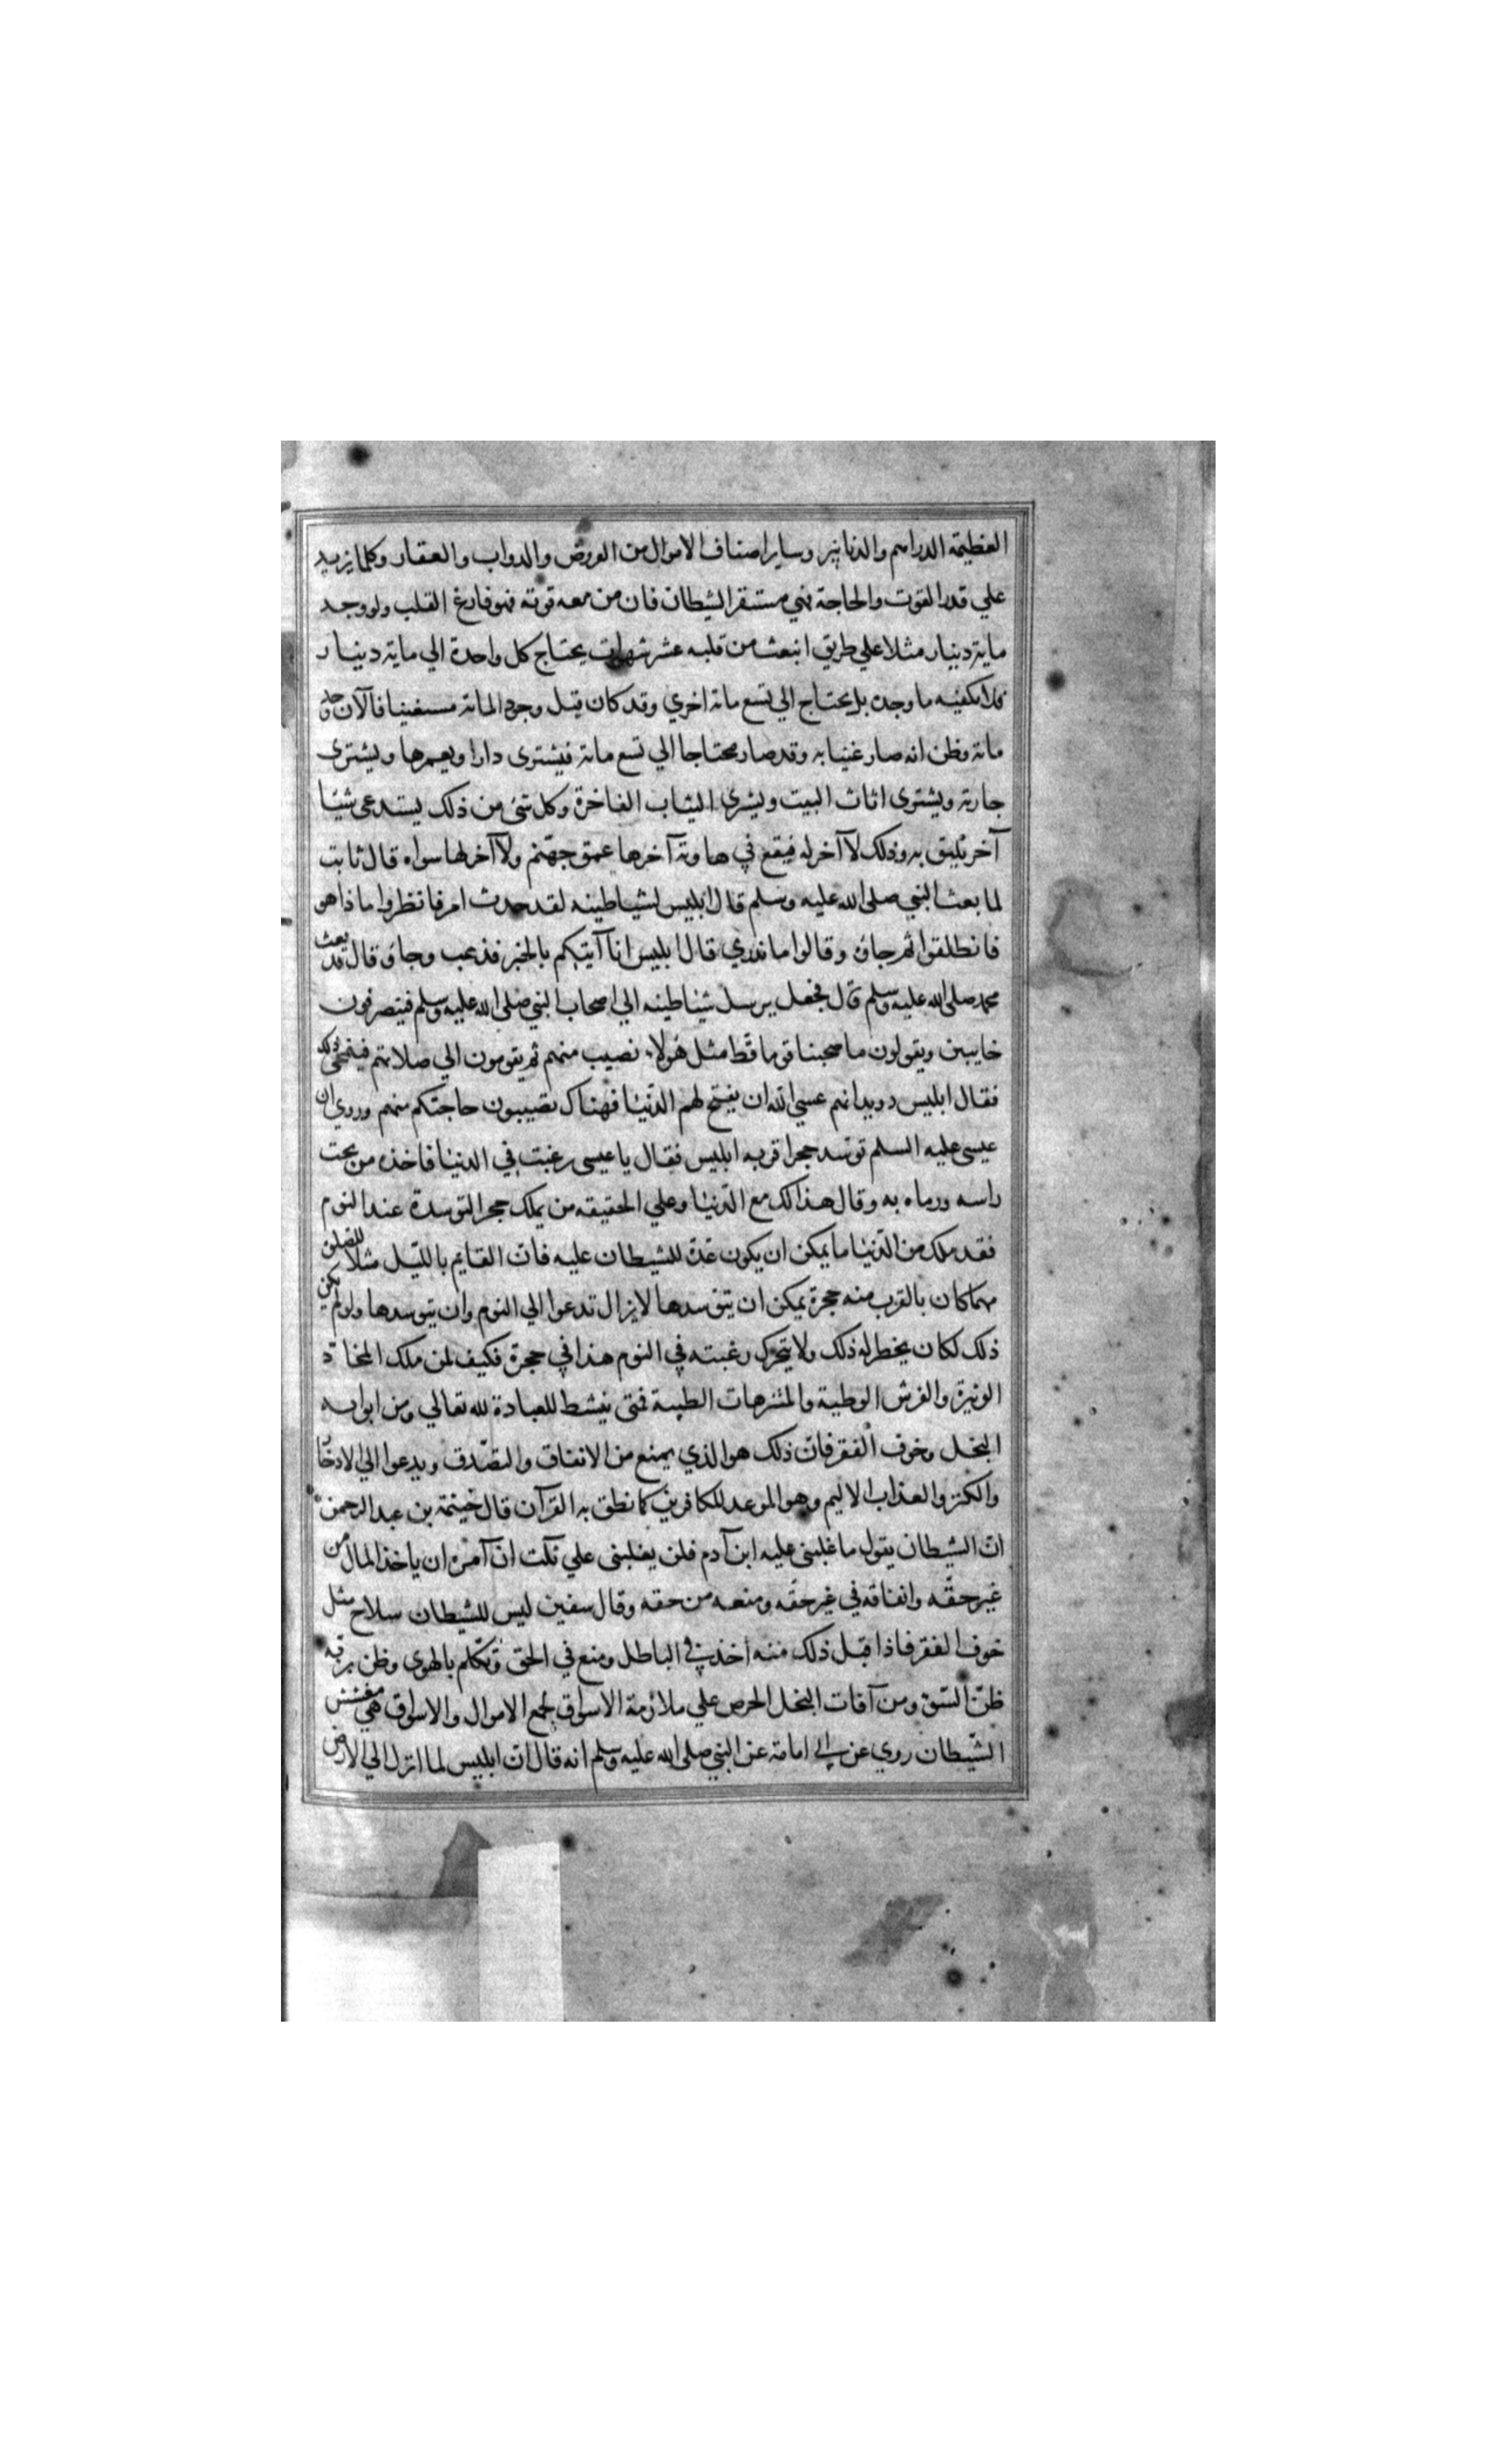 العظيمة الدراهم والدنانير وساير اصناف الاموال من العروض والدواب والعقار وكلما يزيد
علي قدر القوت والحاجة فهي مستقر الشيطان فان من معه قوته فهو فارغ القلب ولو وجد
ماية دينار مثلا علي طريق انبعث من قلبه عشر شهوات يحتاج كل واحدة الي ماية دينار
فلا تكفيه ما وجده بل يحتاج الي تسع ماية اخري وقد كان قبل وجود الماية مستغنيا فالآن وجد
ماية وظن انه صار غنيا به وقد صار محتاجا الي تسع ماية فيشترى دارا ويعمرها ويشترى
جارية ويشترى اثاث البيت ويشرى الثياب الفاخرة وكل شى من ذلك يستدعى شيئا
آخر يليق به وذلك لا آخر له فيقع في هاوية آخرها عمق جهنم ولا آخر لها سواه قال ثابت
لما بعث النبي صلى الله عليه وسلم قال ابليس لشياطينه لقد حدث امر فانظروا ماذا هو
فانطلقوا ثم جاؤا وقالوا ما ندري قال ابليس انا آتيكم بالخبر فذهب وجاؤ قال قد بعث
محمد صلى الله عليه وسلم قال فجعل يرسل شياطينه الي اصحاب النبي صلى الله عليه وسلم فينصرفون
خايبين ويقولون ما صحبنا قوما قط مثل هؤلاء نصيب منهم ثم يقومون الي صلاتهم فيمحى ذلك
فقال ابليس رويدا بهم عسي الله ان يفتح لهم الدنيا فهناك تصيبون حاجتكم منهم وروي ان
عيسى عليه السلم توسد حجرا فمر به ابليس فقال يا عيسى رغبت في الدنيا فاخذه من تحت
راسه ورماه به وقال هذا لك مع الدنيا وعلي الحقيقه من يملك حجرا لتوسدة عند النوم
فقد ملك من الدنيا ما يمكن ان يكون عدة للشيطان عليه فان القايم بالليل مثلا للصلوة
مهما كان بالقرب منه حجرة يمكن ان يتوسدها لا يزال تدعوا الي النوم وان يتوسدها ولو لم يكن
ذلك لكان يخطر له ذلك ولا يتحرك رغبته في النوم هذا في حجرة فكيف لمن ملك المخاد
الوثيرة والفرش الوطية والمتنزهات الطيبة فمتى ينشط للعبادة لله تعالي ومن ابوابه
البخل وخوف الفقر فان ذلك هو الذي يمنع من الانفاق والتصدق ويدعوا الي الادخار
والكنز والعذاب الاليم وهو الموعد للكافرين كما نطق به القرآن قال خيثمة بن عبد الرحمن
ان الشيطان يقول ما غلبنى عليه ابن آدم فلن يغلبنى علي ثلث ان آمره ان ياخذ المال من
غير حقه وانفاقه في غير حقه ومنعه من حقه وقال سفين ليس للشيطان سلاح مثل
خوف الفقر فاذا قبل ذلك منه اخذ في الباطل ومنع في الحق وتكلم بالهوى وظن بربه
ظن السوء ومن آفات البخل الحرص علي ملازمة الاسواق لجمع الاموال والاسواق هي معشش
الشيطان روي عن ابي امامة عن النبي صلى الله عليه وسلم انه قال ان ابليس لما انزل الي الارض